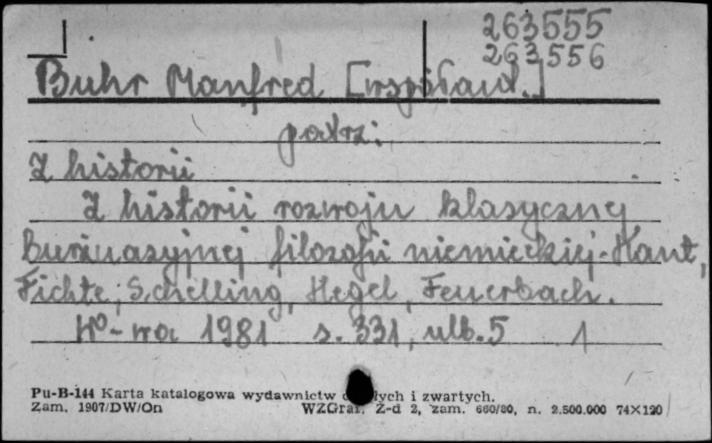 263555
263556
Buhr Manfred [współaut.]
patrz:
Z historii
Z historii rozwoju klasycznej
burżuazyjnej filozofii niemieckiej. Kant,
Fichte, Schelling, Hegel, Feuerbach.
W⁰-wa 1981 s. 331, ulb. 5 1
Pu-B-144 Karta katalogowa wydawnictw ych i zwartych.
Zam. 1907/DW/On WZGraf. Z-d 2, zam. 660/80, n. 2.500.000 74X120